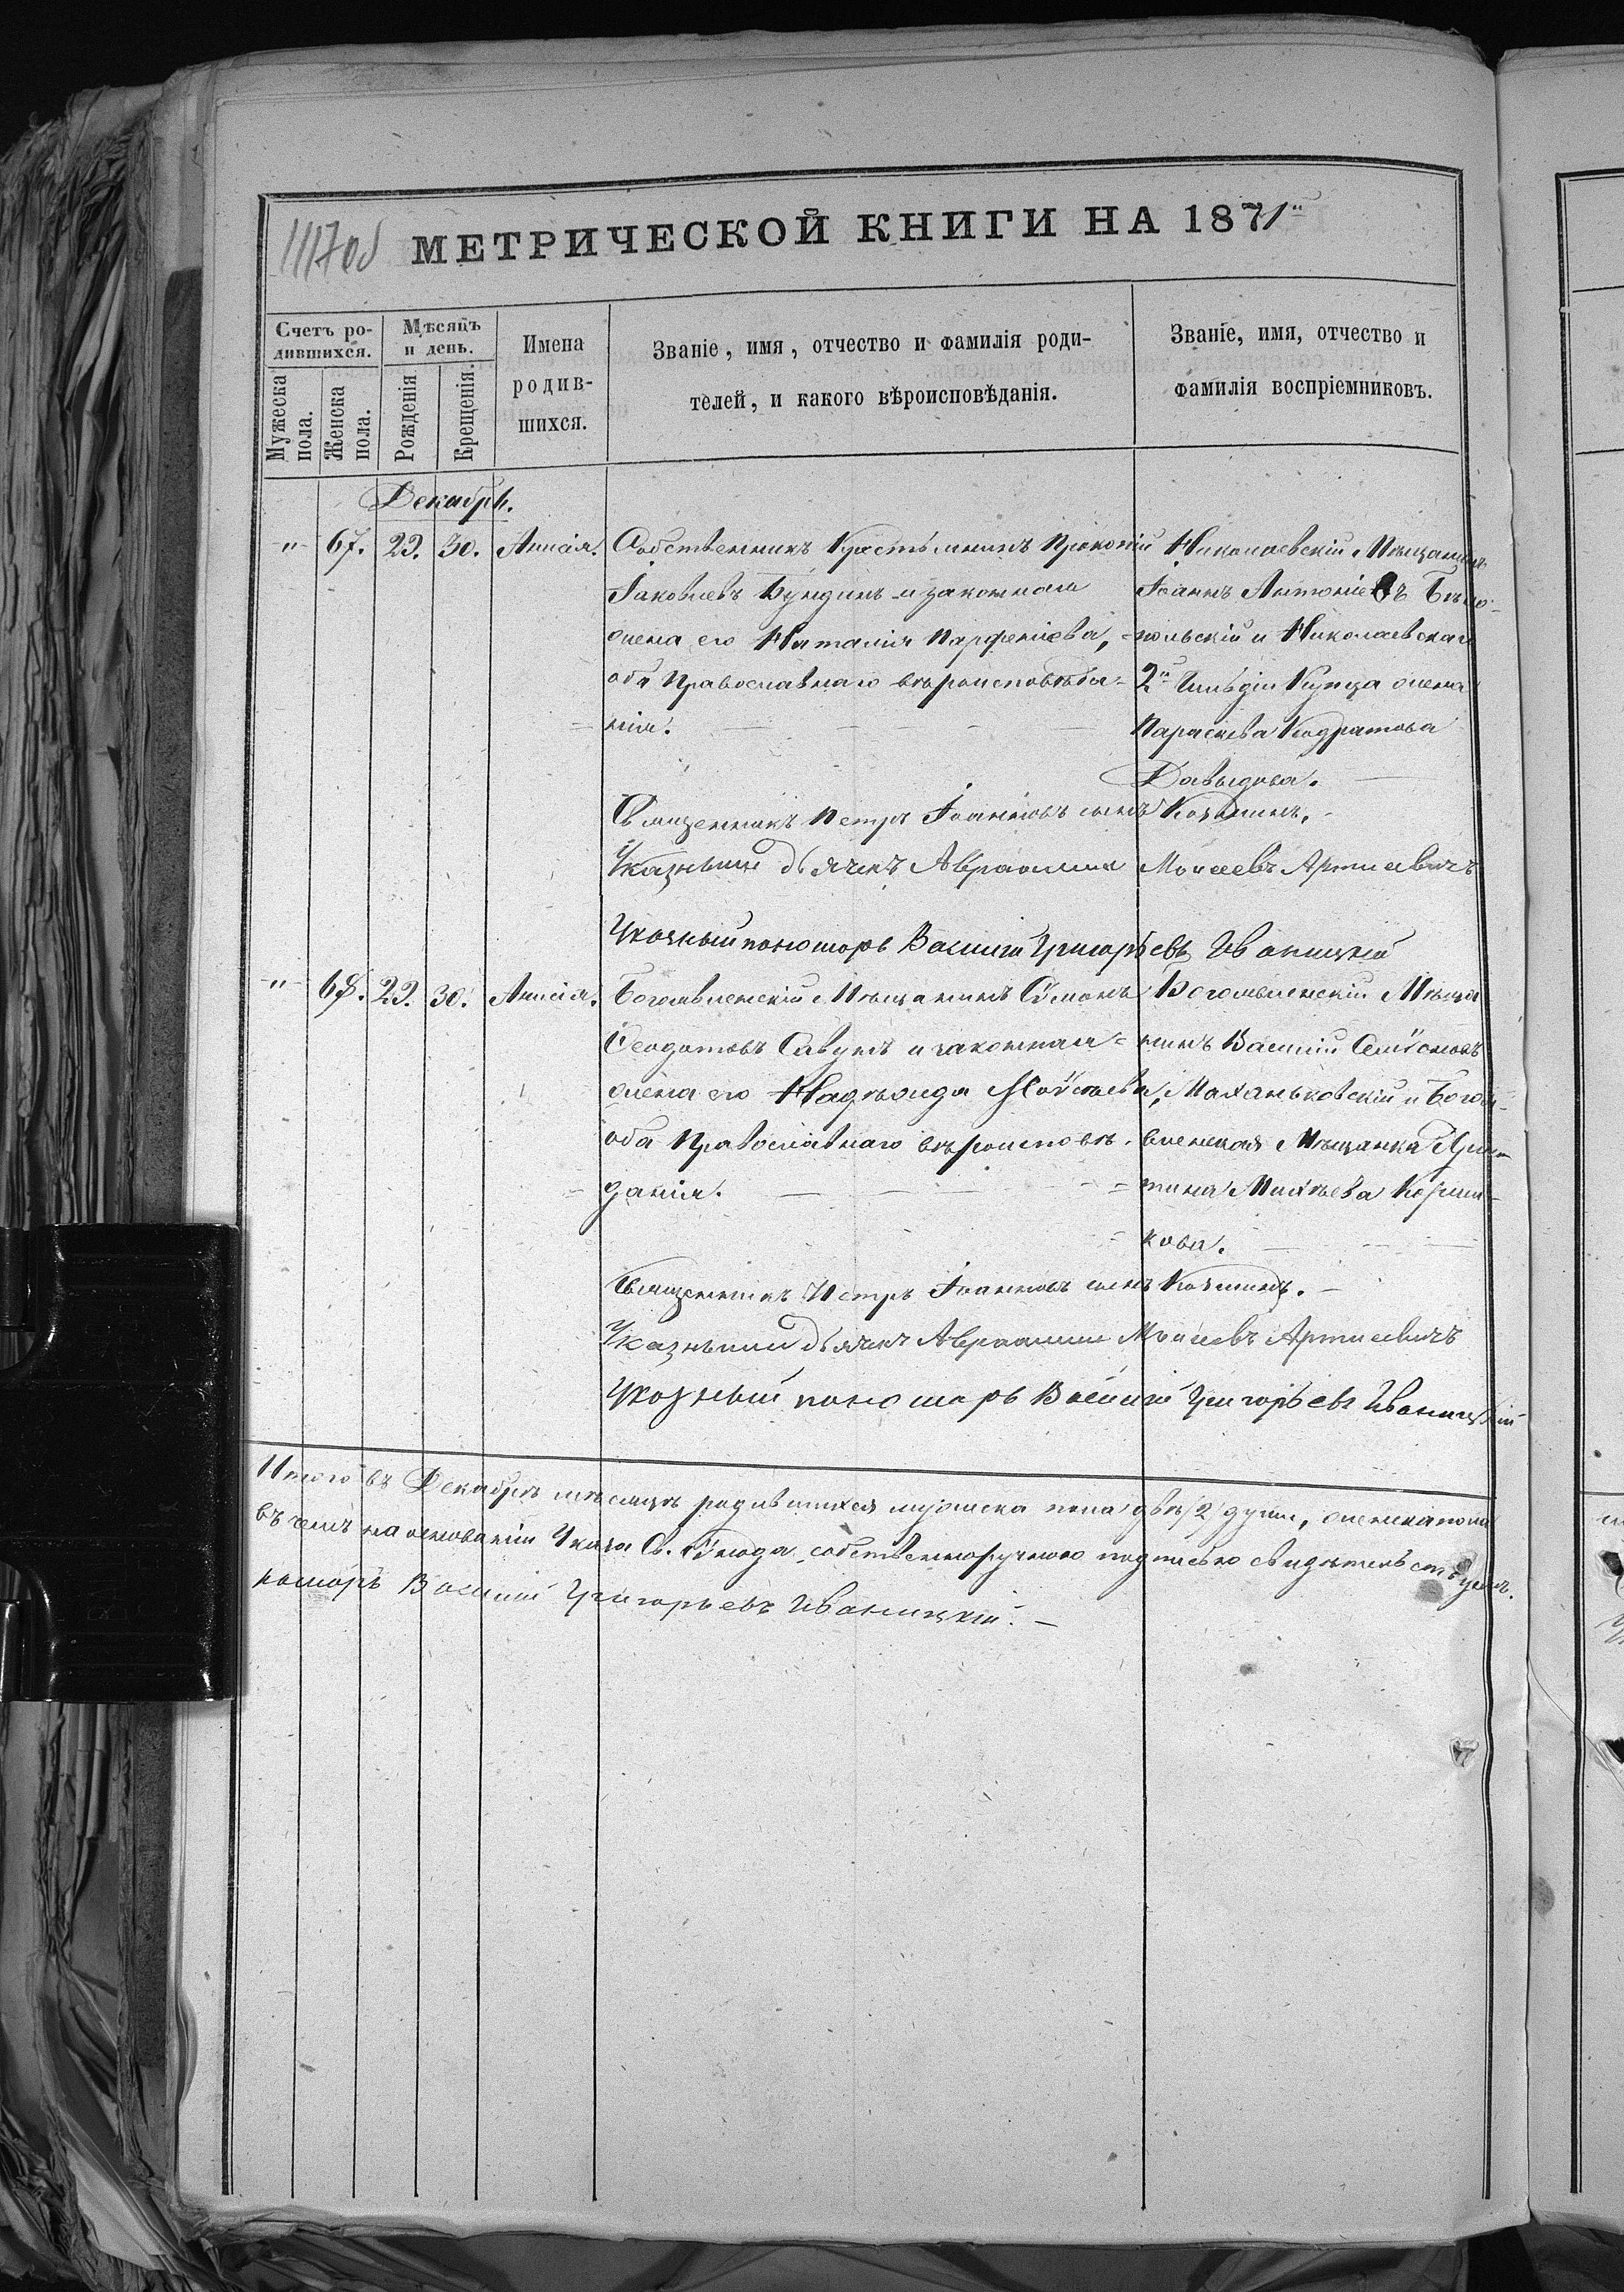 МЕТРИЧЕСКОЙ КНИГИ НА 1871
Счетъ ро-
дившихся.
Мужеска
пола.
Женска
пола.
Мѣсяцъ
и день.
Рожденія
Крещенія.
Имена
родив-
шихся.
Званіе, имя, отчество и фамилія роди-
телей, и какого вѣроисповѣданія.
Званіе, имя, отчество и
фамилія воспріемниковъ.
Декабрь.
" 67. 29. 30. Анисія.
Собственникъ Крестьянинъ Прокопій
Іаковлевъ Бундинъ и законная
жена его Наталія Парфеніева,
оба Православнаго вѣроисповѣда-
нія.
Николаевскій Мѣщанинъ
Іоаннъ Антоніевъ Бѣло-
польскій и Николаевскаго
2й Гильдіи Купца жена
Параскева Кодратова
Давыдова.
Священникъ Петръ Іоанновъ сынъ
Указный дьячекъ Авраамій Моисеевъ
Указный пономарь Василій Григорьевъ Иваницкій
" 68. 29. 30. Анисія.
Богоявленскій Мѣщанинъ Симонъ
Ѳеодотовъ Савунъ и законная
жена его Надежда Моисіева,
оба Православнаго вѣроисповѣ-
данія.
Богоявленскій Мѣща-
нинъ Василій Семіоновъ
Маханьковскій и Богоя-
вленская Мѣщанка
Кова.
Священникъ Петръ Іоанновъ сынъ
Указный дьячекъ Авраамій Моисеевъ
Указный пономарь Василій Григорьевъ Иваницкій
Итого въ Декабрѣ мѣсяцѣ родившихся мужеска пола двѣ /2/ души, женска пола
въ чемъ на основаніи Указа Св. Синода собственноручною подписью свидѣтельствуемъ.
номарь Василій Григорьевъ Иваницкій. —